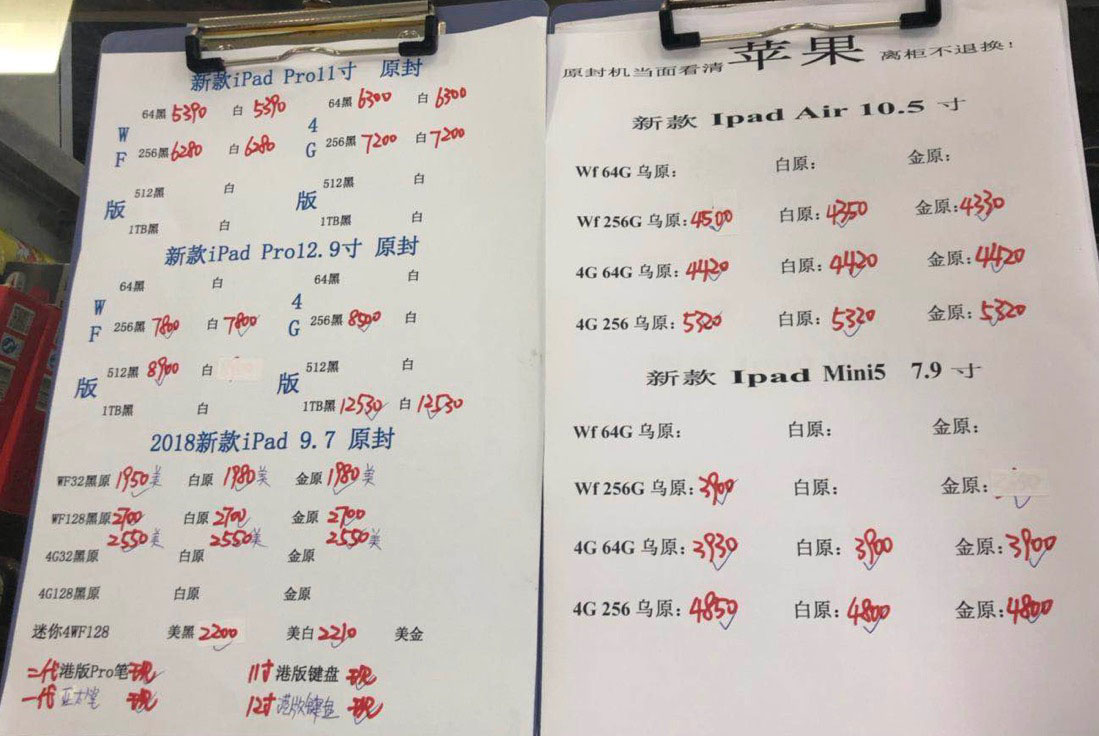 新款iPad Pro11寸 原封
WF版 4G版
64黑 5390 白 5390 64黑 6300 白 6300
256黑 6280 白 6280 256黑 7200 白 7200
512黑 白 512黑 白
1TB黑 白 1TB黑 白
新款iPad Pro12.9寸 原封
WF版 4G版
64黑 白 64黑 白
256黑 7800 白 7800 256黑 8500 白
512黑 8900 白 512黑 白
1TB黑 白 1TB黑 12530 白 12530
2018新款iPad 9.7 原封
WF32黑原 1950美 白原 1980美 金原 1980美
WF128黑原 2700 白原 2700 金原 2700
2550美 2550美 2550美
4G32黑原 白原 金原
4G128黑原 白原 金原
迷你4WF128 美黑 2200 美白 2210 美金
二代港版Pro笔 现 11寸港版键盘 现
一代亚太笔 现 12寸港版键盘 现
原封机当面看清 苹果 离柜不退换!
新款 Ipad Air 10.5 寸
Wf 64G 乌原: 白原: 金原:
Wf 256G 乌原: 4500 白原: 4350 金原: 4330
4G 64G 乌原: 4420 白原: 4420 金原: 4420
4G 256 乌原: 5320 白原: 5320 金原: 5320
新款 Ipad Mini5 7.9 寸
Wf 64G 乌原: 白原: 金原:
Wf 256G 乌原: 3900 白原: 金原:
4G 64G 乌原: 3930 白原: 3900 金原: 3900
4G 256 乌原: 4850 白原: 4800 金原: 4800